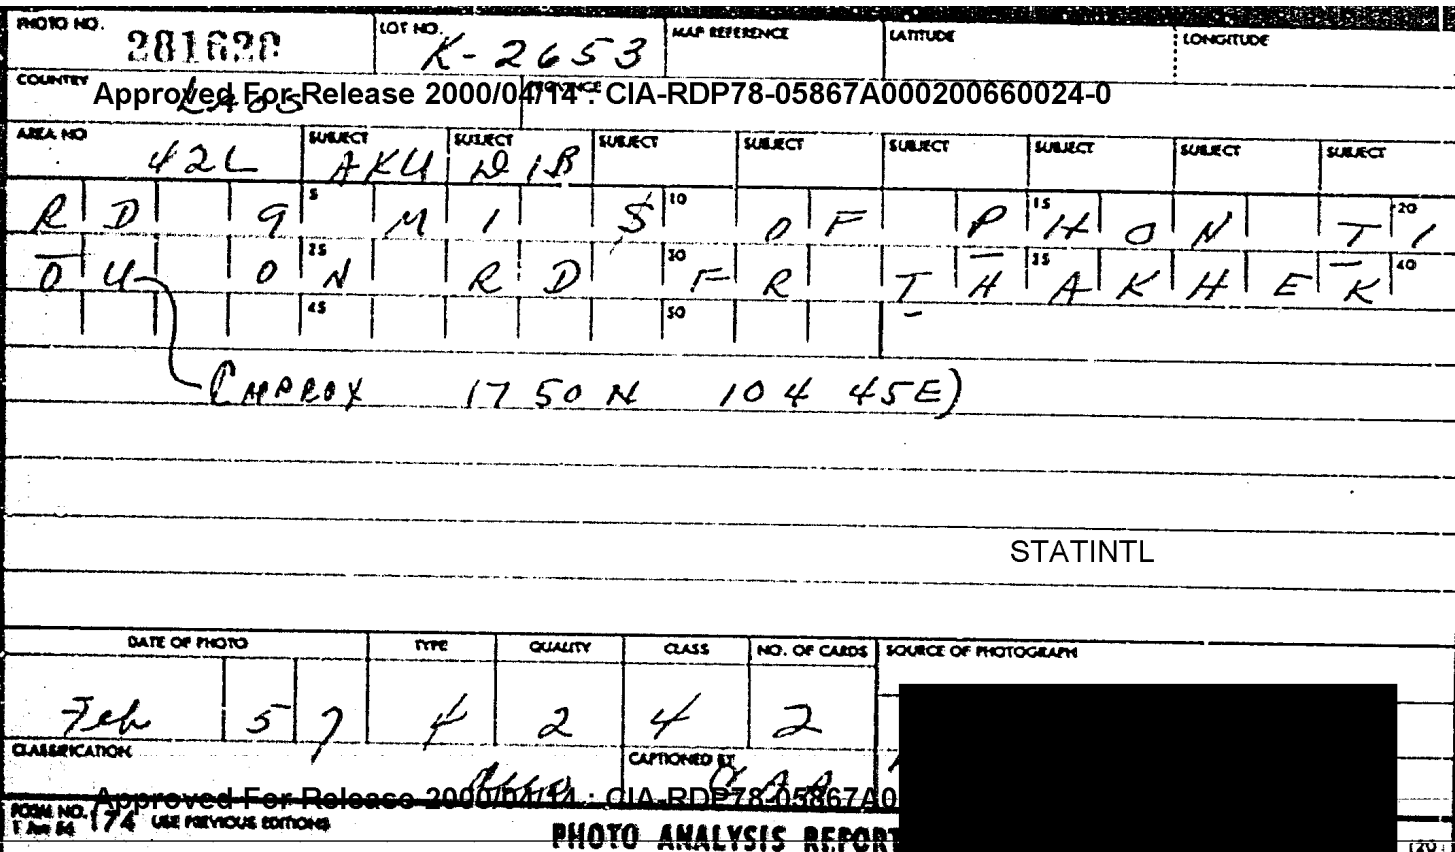 PHOTO NO. 281620 LOT NO. K-2653 MAP REFERENCE LATITUDE LONGITUDE
COUNTRY LAOS PROVINCE
Approved For Release 2000/04/14 : CIA-RDP78-05867A000200660024-0
AREA NO 42L SUBJECT AKU SUBJECT DIB SUBJECT SUBJECT SUBJECT SUBJECT SUBJECT SUBJECT
RD 9 5 MI S 10 OF P 15 HON T 20 I
OU O 25 N RD 30 FR TH 35 AKHEK 40
45 50
(APPROX 17 50 N 104 45E)
STATINTL
DATE OF PHOTO TYPE QUALITY CLASS NO. OF CARDS SOURCE OF PHOTOGRAPH
Feb 5 7 4 2 4 2
CLASSIFICATION CAPTIONED BY
Approved For Release 2000/04/14 : CIA-RDP78-05867A0
FORM NO. 174 USE PREVIOUS EDITIONS
1 Jun 54
PHOTO ANALYSIS REPORT
(20)